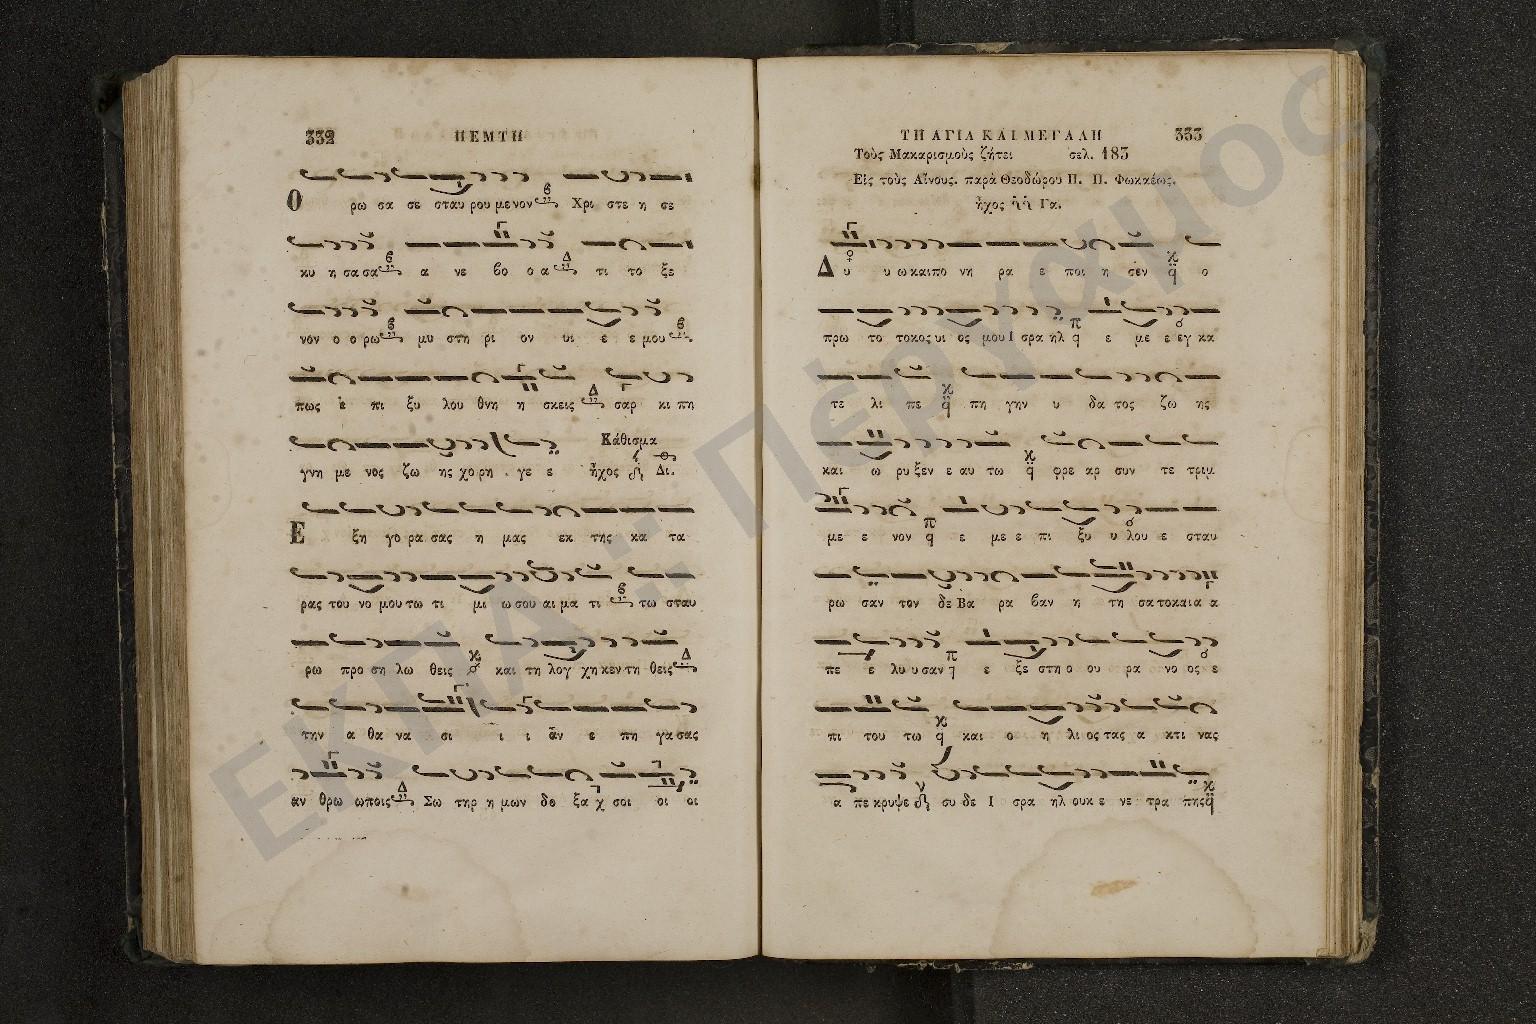 332 ΠΕΜΤΗ
Ο ρω σα σε σταυ ρου με νον Χρι στε η σε
κυ η σα σα α νε βο ο α τι το ξε
νον ο ο ρω μυ στη ρι ον υι ε ε μου
πως ε πι ξυ λου θνη η σκεις σαρ κι πη
γνη με νος ζω ης χο ρη γε ε
Κάθισμα
ἦχος Δι.
Ε ξη γο ρα σας η μας εκ της κα τα
ρας του νο μου τω τι μι ω σου αι μα τι τω σταυ
ρω προ ση λω θεις και τη λογ χη κεν τη θεις
την α θα να σι ι ι αν ε πη γα σας
αν θρω ω ποις Σω τηρ η μων δο ξα σοι οι οι
ΤΗ ΑΓΙΑ ΚΑΙ ΜΕΓΑΛΗ 333
Τοὺς Μακαρισμοὺς ζήτει σελ. 183
Εἰς τοὺς Αἴνους. παρὰ Θεοδώρου Π. Π. Φωκαέως.
ἦχος Γα.
Δ υ υ ω και πο νη ρα ε ποι η σεν ο
πρω το τοκος υι ος μου Ι σρα ηλ ε με ε εγ κα
τε λι πε πη γην υ δα τος ζω ης
και ω ρυ ξεν ε αυ τω φρε αρ συν τε τριμ
με ε νον ε με ε πι ξυ υ λου ε σταυ
ρω σαν τον δε Βα ρα βαν η τη σα το και α α
πε ε λυ υ σαν ε ξε στη ο ου ρα νο ος ε
πι του τω και ο η λι ος τας α κτι νας
α πε κρυψε συ δε Ι σρα ηλ ουκ ε νε τρα πης
ΕΚΠΑ :: Πέργαμος